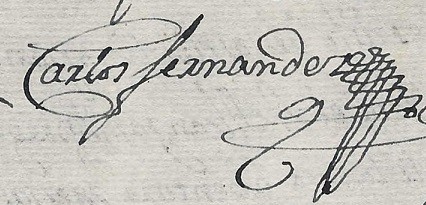 Carlos fernandez